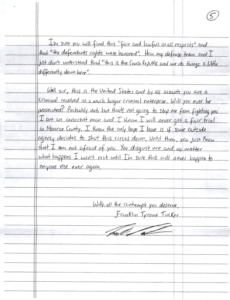 5
I'm sure you will find this "fair and lawful in all respects" and
that "the defendants rights were honored". How my defense team and I
just don't understand that "this is the Conch Republic and we do things a little
differently down here".
Well sir, this is the United States and by all accounts you are a
criminal involved in a much larger criminal enterprise. Will you ever be
prosecuted? Probably not but that's not going to stop me from fighting you
I am an innocent man and I know I will never get a fair trial
in Monroe County. I know the only hope I have is if some outside
agency decides to shut this circus down. Until then, you just know
that I am not afraid of you. You disgust me and no matter
what happens I won't rest until I'm sure this will never happen to
anyone else ever again.
With all the contempt you deserve,
Franklin Tyrone Tucker